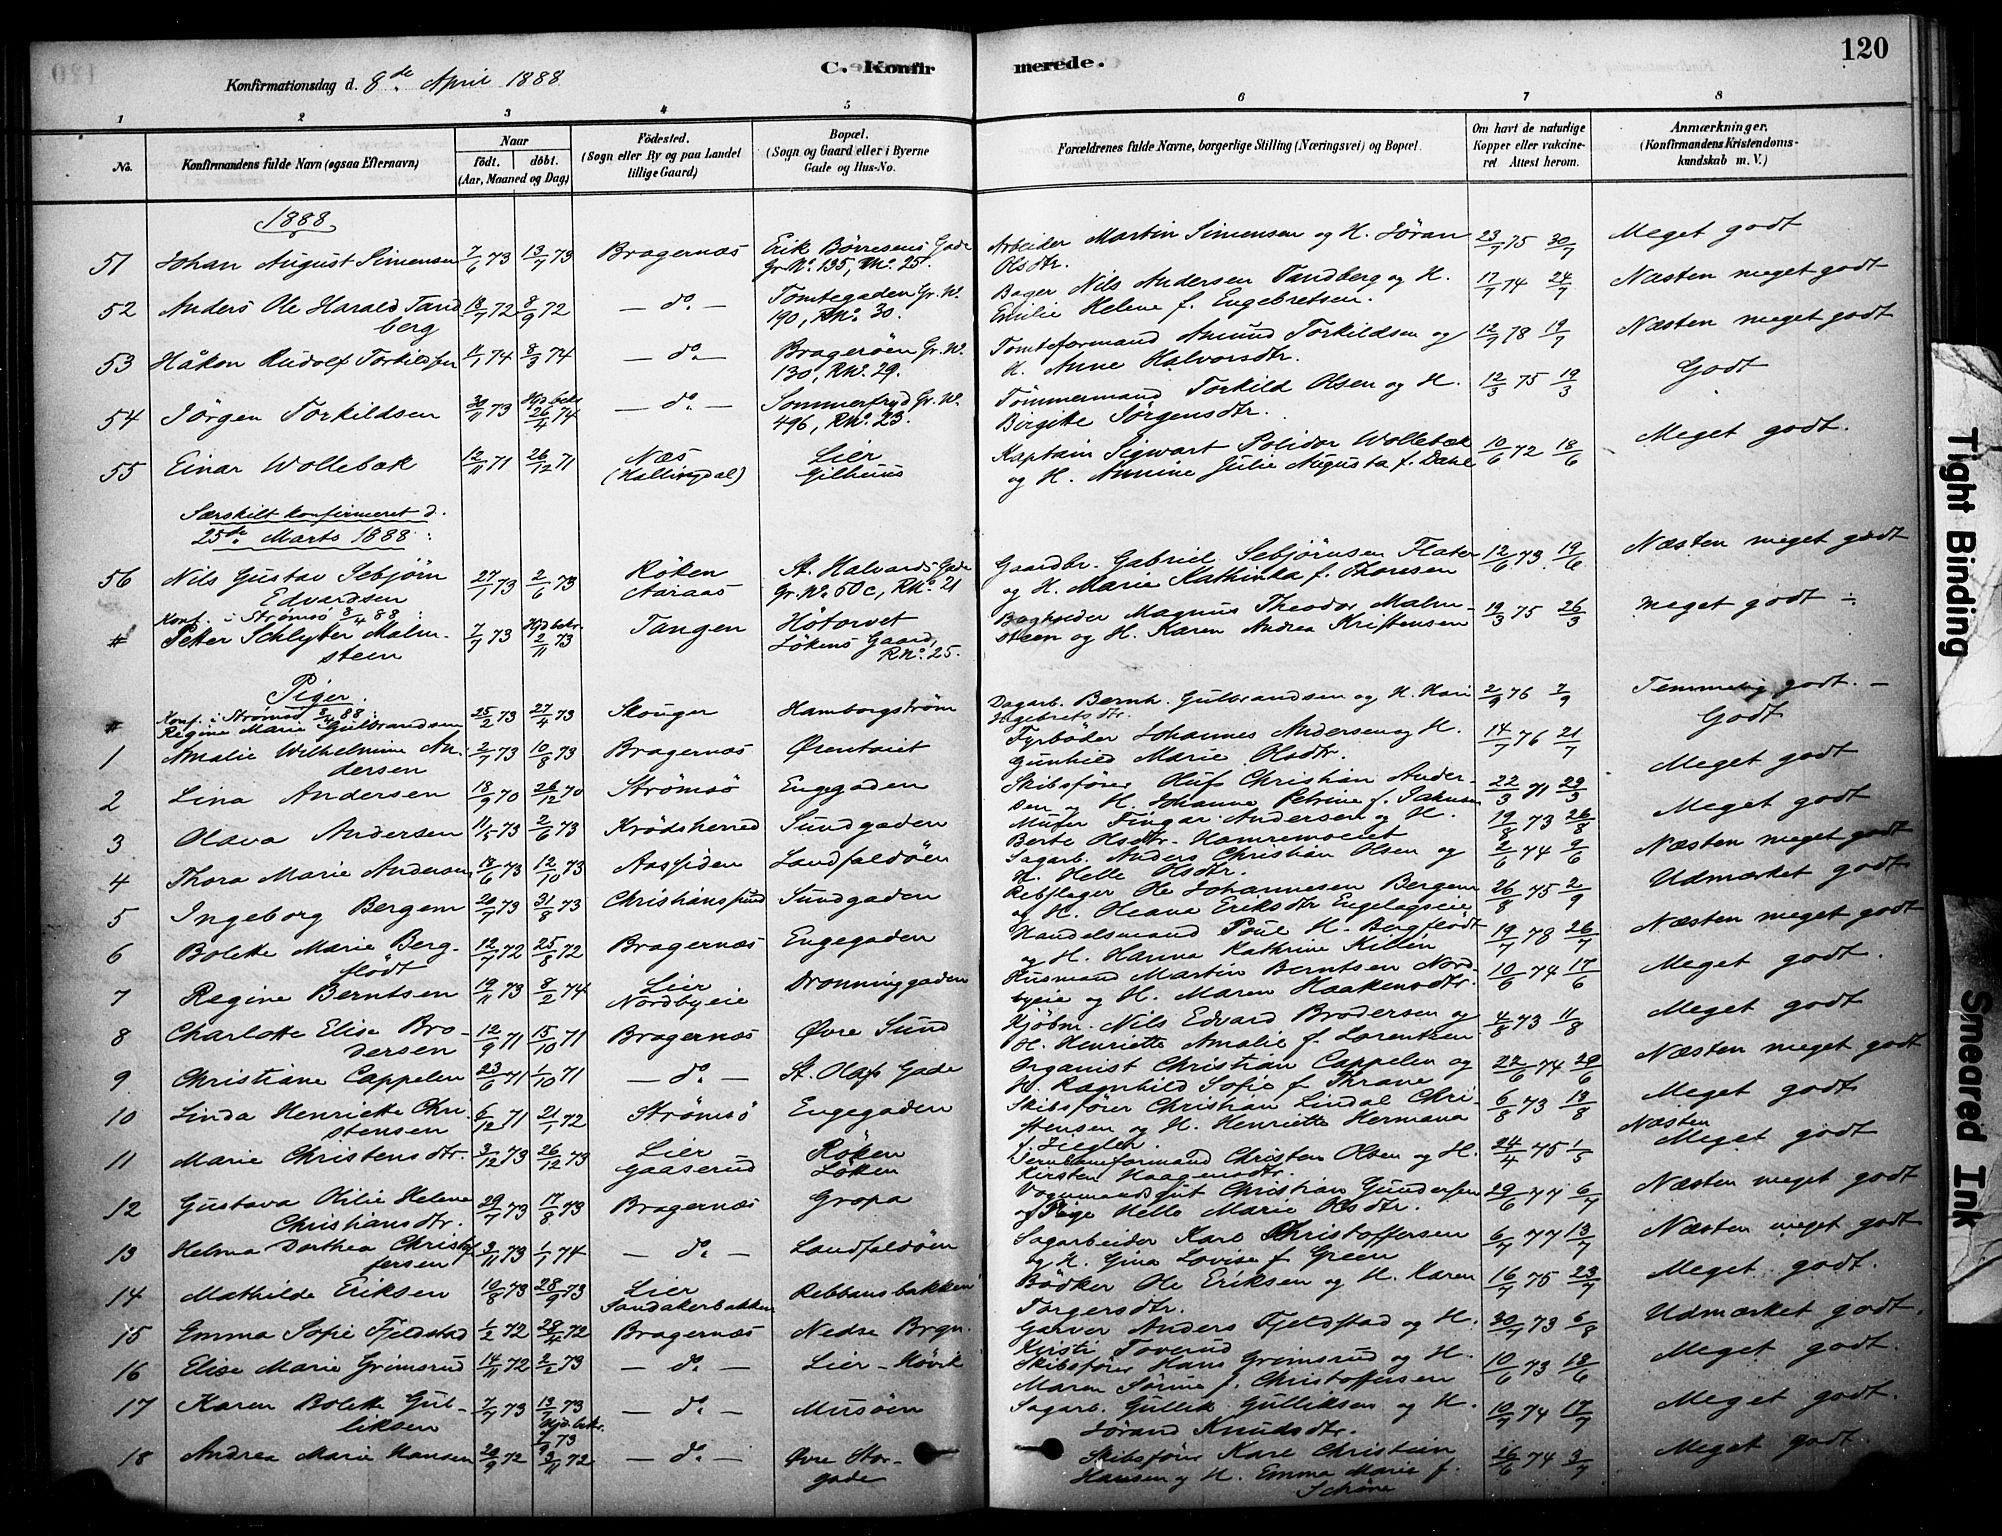 120
C. Konfirmerede.
Konfirmationsdag d. 8de April 1888
1 2 3 4 5 6 7 8
No. Konfirmandens fulde Navn (ogsaa Efternavn) Naar født. døbt. (Aar, Maaned og Dag) Fødested. (Sogn eller By og paa Landet tillige Gaard) Bopæl. (Sogn og Gaard eller i Byerne Gade og Hus-No. Forældrenes fulde Navne, borgerlige Stilling (Næringsvei) og Bopæl. Om havt de naturlige Kopper eller vakcineret Attest herom. Anmærkninger. (Konfirmandens Kristendomskundskab m. V.)
1888
51 Johan August Simensen 7/6 73 13/7 73 Bragernæs Erik Børresens Gade Gr. No. 135, RNo. 25. Arbeider Martin Simensen og H. Jøran Olsdtr. 23/7 75 30/7 Meget godt
52 Anders Ole Harald Tandberg 18/7 72 8/9 72 — do. — Tomtegaden Gr. N. 190, RNo. 30. Bager Nils Andersen Tandberg og H. Emilie Helene f. Engebretsen. 17/7 74 24/7 Næsten meget godt
53 Håkon Rudolf Torkildsen 11/1 74 8/3 74 — do. — Bragerøen Gr. N. 130, RN. 29. Tomteformand Amund Torkildsen og H. Anne Halvorsdtr. 12/7 78 19/7 Næsten meget godt
54 Jørgen Torkildsen 30/11 73 Hjd. bekr. 26/4 74 — do. — Sommerfryd Gr. N. 496, RNo. 23. Tømmermand Torkild Olsen og H. Birgitte Jørgensdtr. 12/3 75 19/3 Godt
55 Einar Wollebæk 12/11 71 26/12 71 Næs (Hallingdal) Lier Gilhuus Kaptain Sigwart Polidor Wollebæk og H. Annine Julie Augusta f. Dahl 10/6 72 18/6 Meget godt.
Særskilt konfirmeret d. 25de Marts 1888:
56 Nils Gustav Sebjørn Edvardsen 27/1 73 2/6 73 Røken Aaraas St. Halvards Gade Gr. No. 60c, RNo. 21 Gaardbr. Gabriel Sebjørnsen Flater og H. Marie Kathinka f. Thoresen 12/6 73. 19/6 Næsten meget godt
Konf. i Strømsø 8/4 88:
# Peter Schlyter Malmsteen 7/7 73 Hjd. bekr. 2/11 73 Tangen Høtorvet Løkens Gaard, RNo. 25. Magnus Theodor Malmsteen og H. Karen Andrea Kristensen 19/3 75 26/3 Meget godt ÷
Piger.
Konf. i Strømsø 8/4 88:
# Regine Marie Gulbrandsen 25/2 73 27/4 73 Skouger Hamborgstrøm Dagarb. Bernh. Gulbrandsen og H. Kari Ingebretsdtr. 2/9 76 7/9 Temmelig godt. —
1 Amalie Wilhelmine Andersen 2/7 73 10/8 73 Bragernæs Ørentoiet Fyrbøder Johannes Andersen og H. Gunhild Marie Olsdtr. 14/7 76 21/7 Godt
2 Lina Andersen 18/9 70 26/12 70 Strømsø Engegaden Skibsfører Oluf Christian Andersen og H. Johanne Petrine f. Jakobsen 22/3 71 29/3 Meget godt
3 Olava Andersen 11/5 73 2/6 73 Krødsherred Sundgaden Murer Fingar Andersen og H. Berte Olsdtr. Hamremoeiet 19/8 73 26/8 Meget godt
4 Thora Marie Andersen 18/6 73 12/10 73 Aassiden Landfaldøen Sagarb. Anders Christian Olsen og H. Helle Olsdtr. 2/6 74 9/6 Næsten meget godt
5 Ingeborg Bergem 20/7 73 31/8 73 Christianssund Sundgaden Rebslager Ole Johannesen Bergem og H. Oleana Eriksdtr Engelagseie 26/8 75 2/9 Udmærket godt
6 Bolette Marie Bergflødt 12/7 72 25/8 72 Bragernæs Engegaden Handelsmand Poul H. Bergflødt og H. Hanna Kathrine Killin 19/7 78 26/7 Næsten meget godt
7 Regine Berntsen 19/11 73 8/2 74 Lier Nordbyeie Dronninggaden Husmand Martin Berntsen Nordbyeie og H. Maren Haakensdtr. 10/6 74 17/6 Meget godt.
8 Charlotte Elise Brodersen 12/9 71 15/10 71 Bragernæs Øvre Sund Kjøbm. Nils Edvard Brodersen og H. Henriette Amalie f. Lorentzen 4/8 73 11/8 Meget godt
9 Christiane Cappelen 23/6 71 1/10 71 — do. — St. Olafs Gade Organist Christian Cappelen og H. Ragnhild Sofie f. Thrane 22/6 74 29/6 Næsten meget godt
10 Linda Henriette Christensen 6/12 71 21/1 72 Strømsø Engegaden Skibsfører Christian Lindal Christensen og H. Henriette Hermana f. Ziegler. 6/8 73 13/8 Meget godt
11 Marie Christensdtr. 3/12 73 26/12 73 Lier Gaaserud Røken Løken Christen Olsen og H. Kirsten Haagensdtr. 24/4 75 1/5 Næsten Meget godt
12 Gustava Otilie Helene Christiansdtr. 29/7 73 17/8 73 Bragernæs Gropa Christian Gundersen og Pige Helle Marie Olsdtr. 29/6 77 6/7 Næsten meget godt
13 Helma Dorthea Christoffersen 3/11 73 1/1 74 — do. — Landfaldøen Sagarbeider Karl Christoffersen og H. Gina Lovise f. Green 6/7 77 13/7 Næsten meget godt
14 Mathilde Eriksen 10/8 73 28/9 73 Lier Sandakerbakken Rebbansbakken Bødker Ole Eriksen og H. Karen Torgersdtr. 16/7 75 23/7 Meget godt.
15 Emma Sofie Fjeldstad 1/2 72 28/4 72 Bragernæs Nedre Brgn. Garver Anders Fjeldstad og H. Kirsti Toverud 30/7 73 6/8 Udmærket godt.
16 Elise Marie Grimsrud 14/11 72 2/2 73 — do. — Lier – Høvik Skibsfører Hans Grimsrud og H. Maren Sørine f. Christoffersen 10/6 73 18/6 Meget godt.
17 Karen Bolette Gulliksen 7/7 73 13/7 73 Hjd. bekr. 73 — do. — Musøen Sagarb. Gullik Gulliksen og H. Jørand Knudsdtr. 10/7 74 17/7 Meget godt.
18 Andrea Marie Hansen 20/9 72 3/11 72 — do. — Øvre Storgade Skibsfører Karl Christian Hansen og H. Emma Marie f. Schøne 26/6 74 3/7 Meget godt.
Tight Binding
Smeared Ink